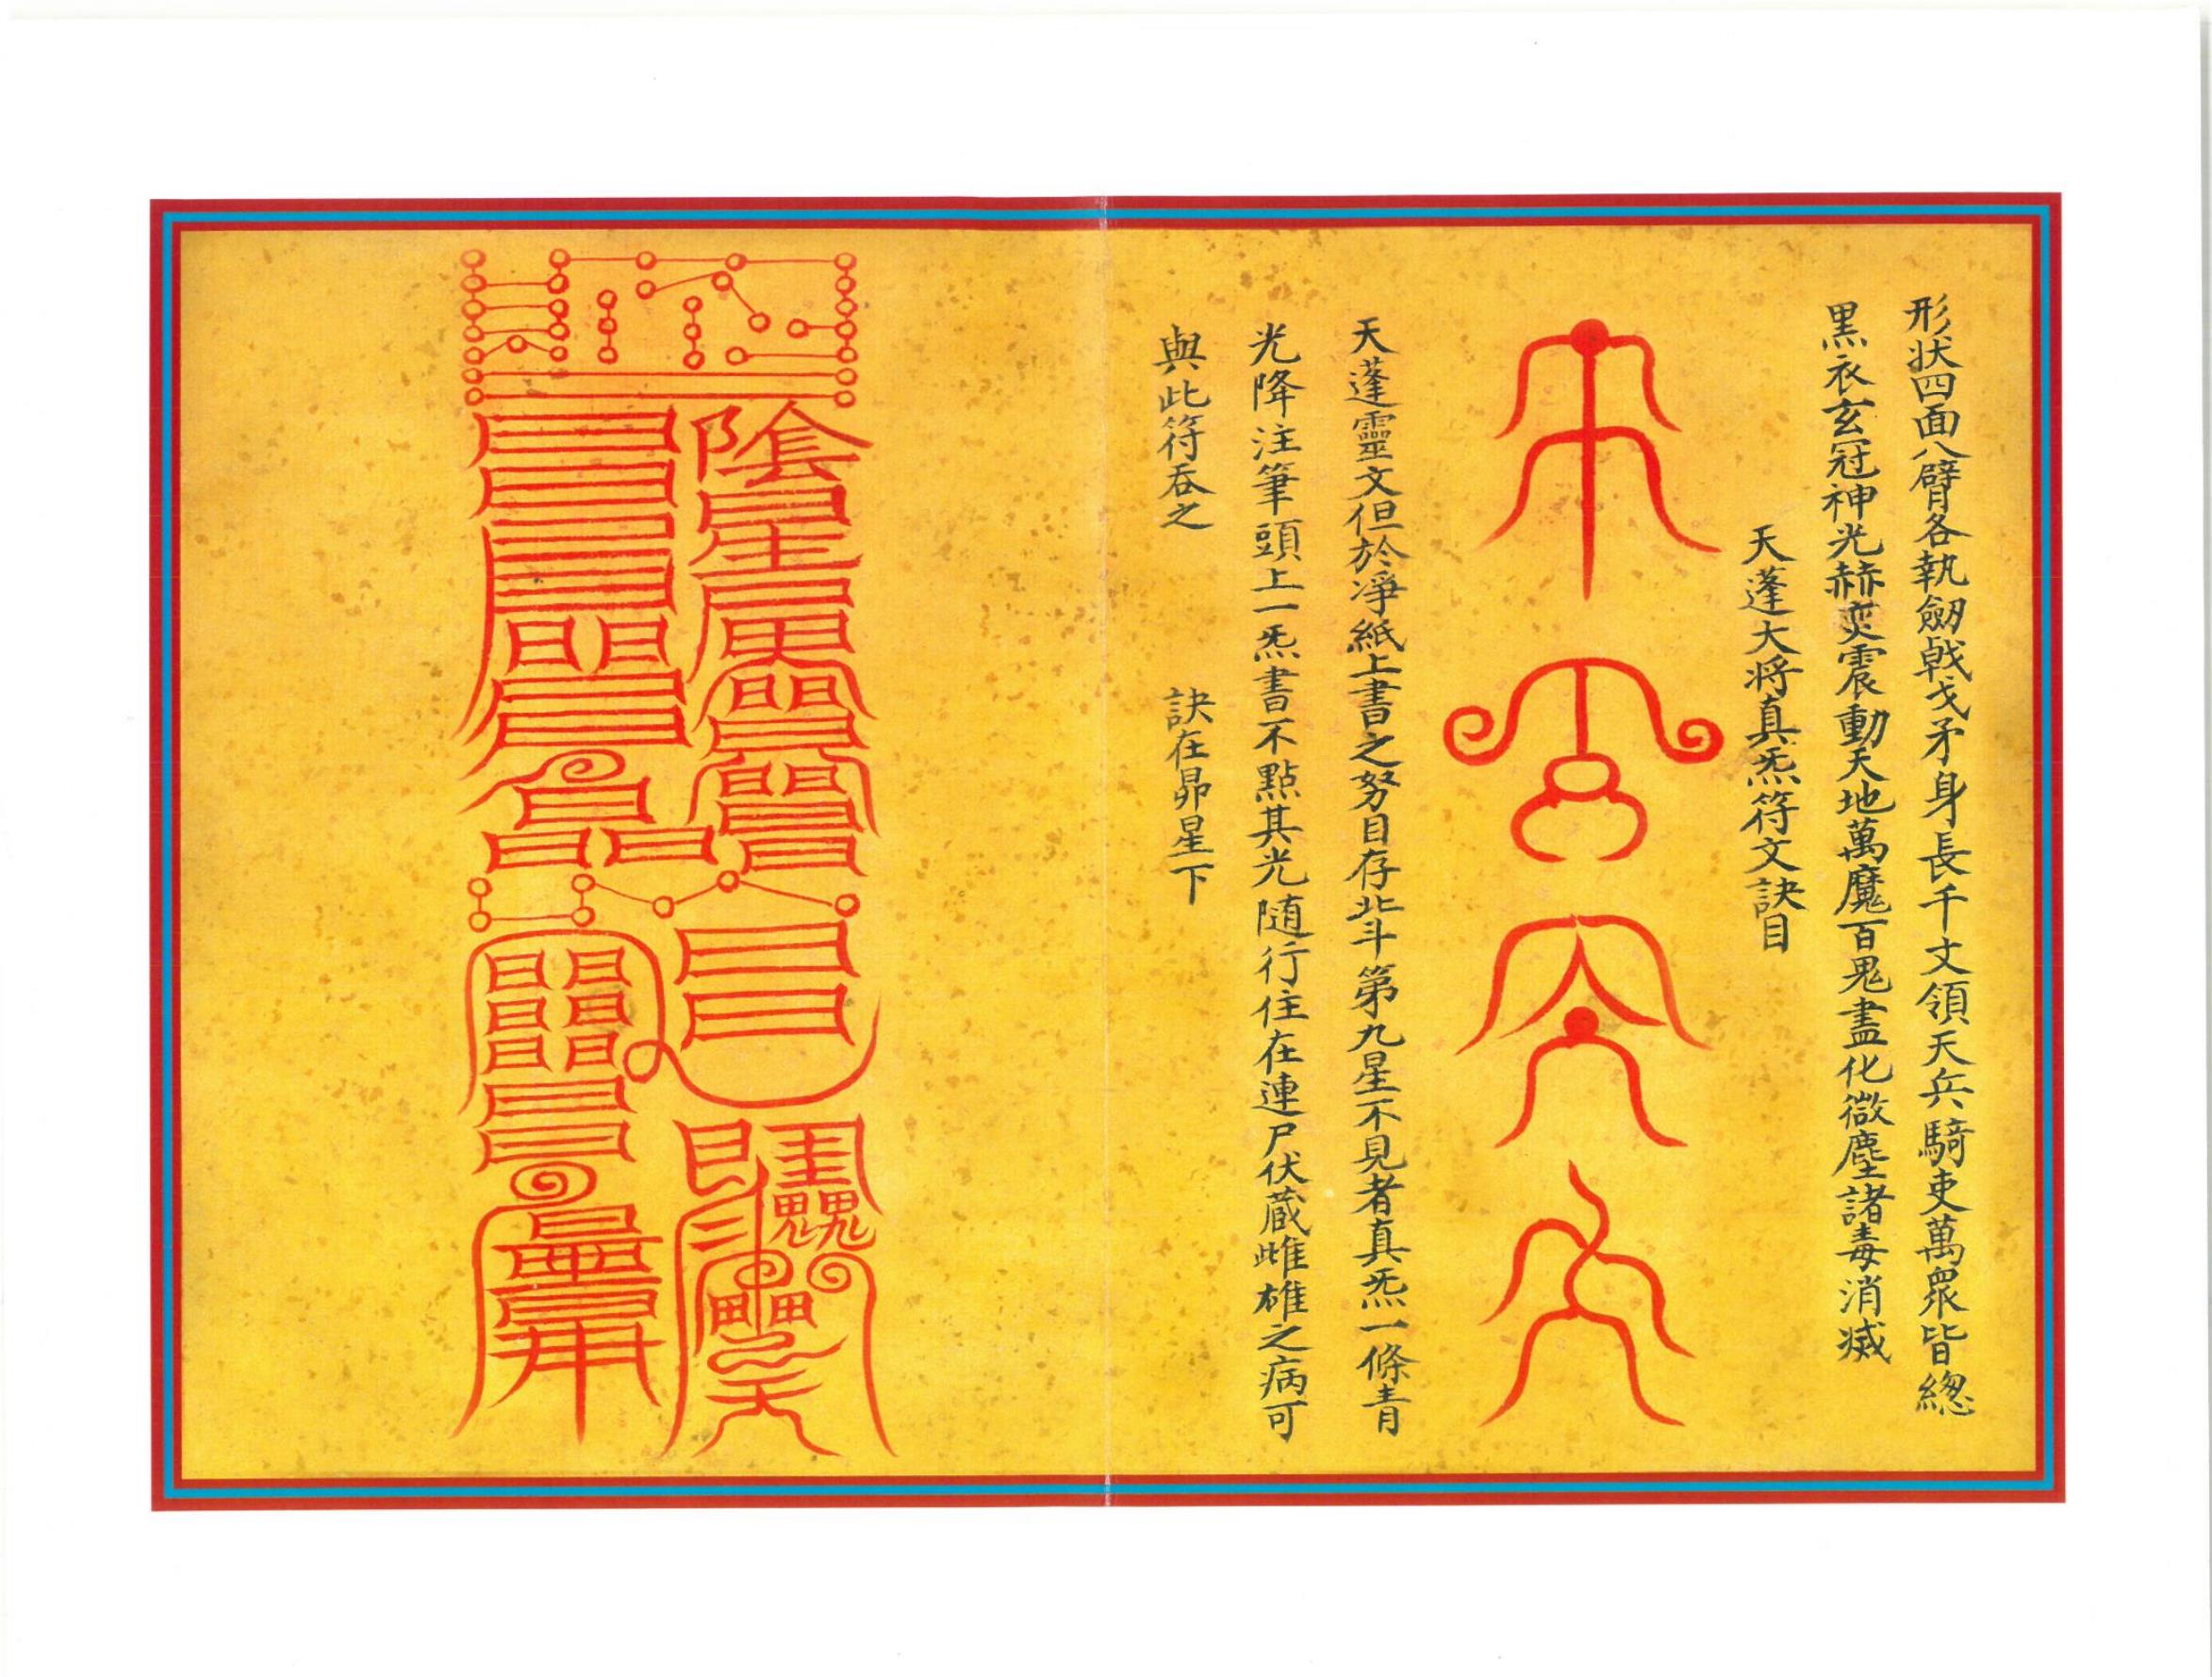 形状四面八臂各執劒戟戈矛身長千丈領天兵騎吏萬眾皆總
黑衣玄冠神光赫奕震動天地萬魔百鬼盡化微塵諸毒消滅
天蓬大将真炁符文訣目
天蓬靈文但於淨紙上書之努目存北斗第九星不見者真炁一條青
光降注筆頭上一炁書不點其光随行住在連尸伏蔵雌雄之病可
與此符吞之　訣在昴星下
陰星